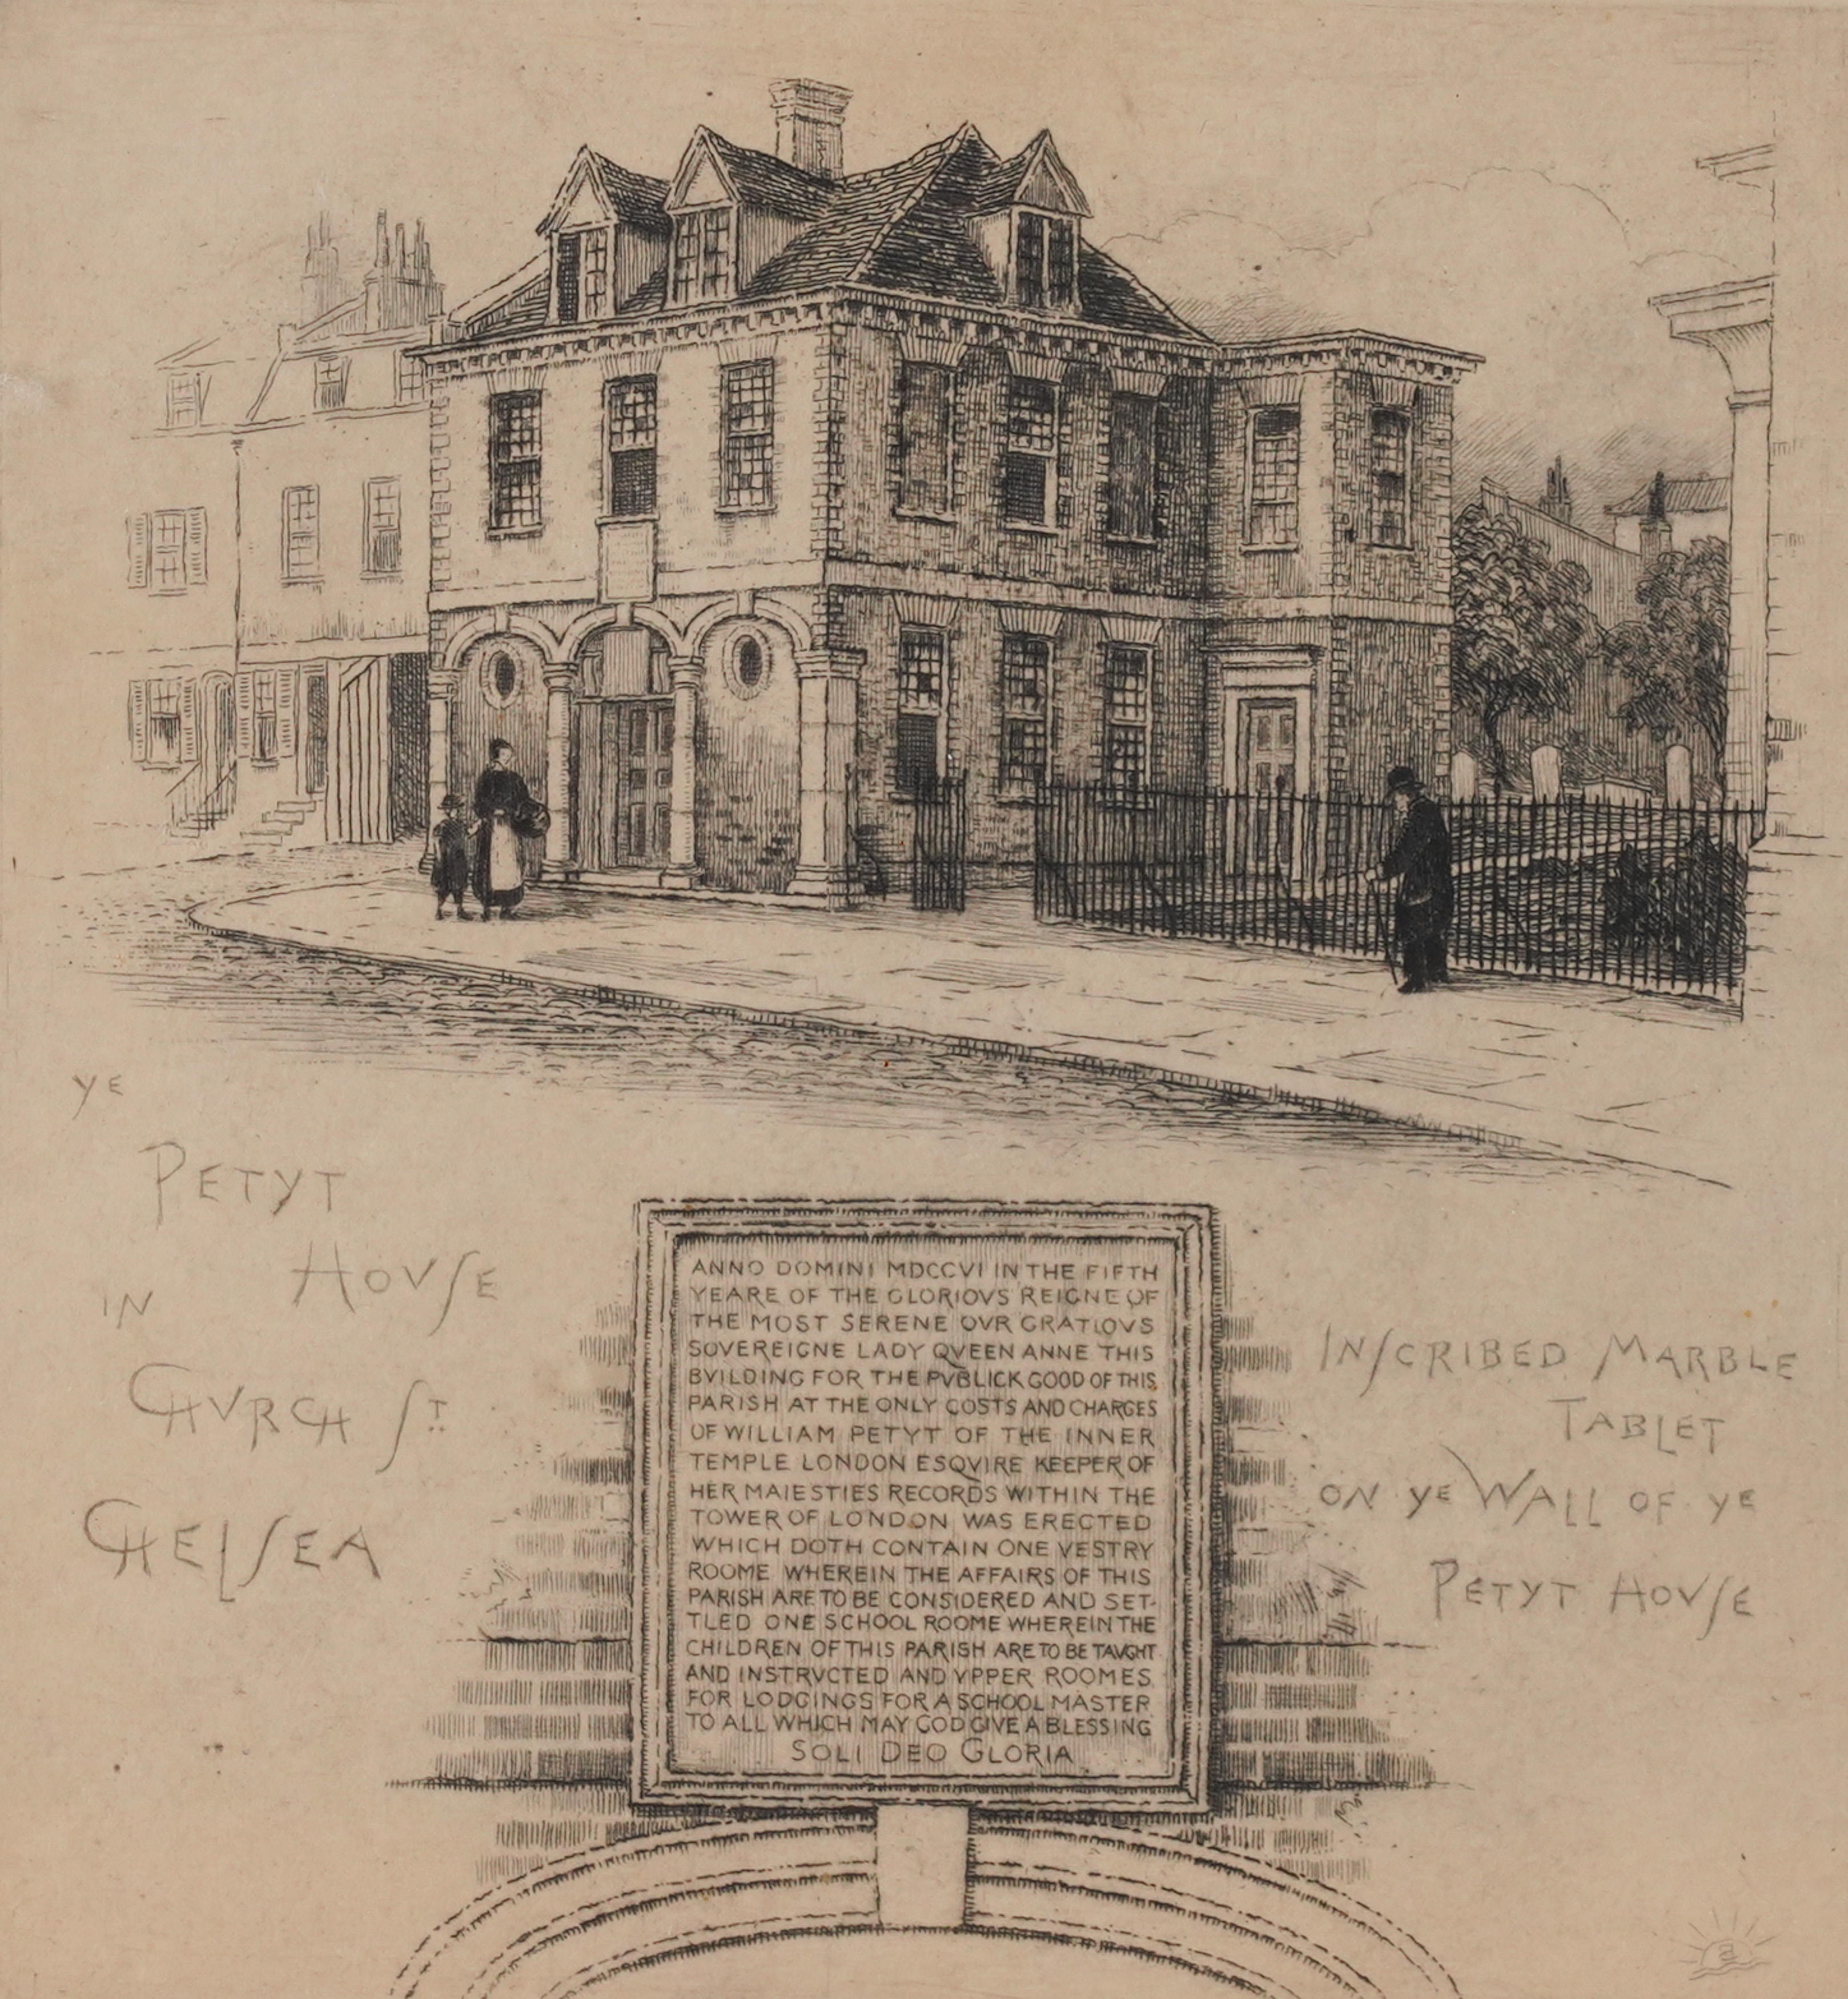 YE
PETYT
HOVSE
IN
CHVRCH ST.
CHELSEA
ANNO DOMINI MDCCVI IN THE FIFTH
YEARE OF THE GLORIOVS REIGNE OF
THE MOST SERENE OVR GRATIOVS
SOVEREIGNE LADY QVEEN ANNE THIS
BVILDING FOR THE PVBLICK GOOD OF THIS
PARISH AT THE ONLY COSTS AND CHARGES
OF WILLIAM PETYT OF THE INNER
TEMPLE LONDON ESQVIRE KEEPER OF
HER MAIESTIES RECORDS WITHIN THE
TOWER OF LONDON WAS ERECTED
WHICH DOTH CONTAIN ONE VESTRY
ROOME WHEREIN THE AFFAIRS OF THIS
PARISH ARE TO BE CONSIDERED AND SET-
TLED ONE SCHOOL ROOME WHEREIN THE
CHILDREN OF THIS PARISH ARE TO BE TAVGHT
AND INSTRVCTED AND VPPER ROOMES
FOR LODGINGS FOR A SCHOOL MASTER
TO ALL WHICH MAY GOD GIVE A BLESSING
SOLI DEO GLORIA
INSCRIBED MARBLE
TABLET
ON YE WALL OF YE
PETYT HOVSE